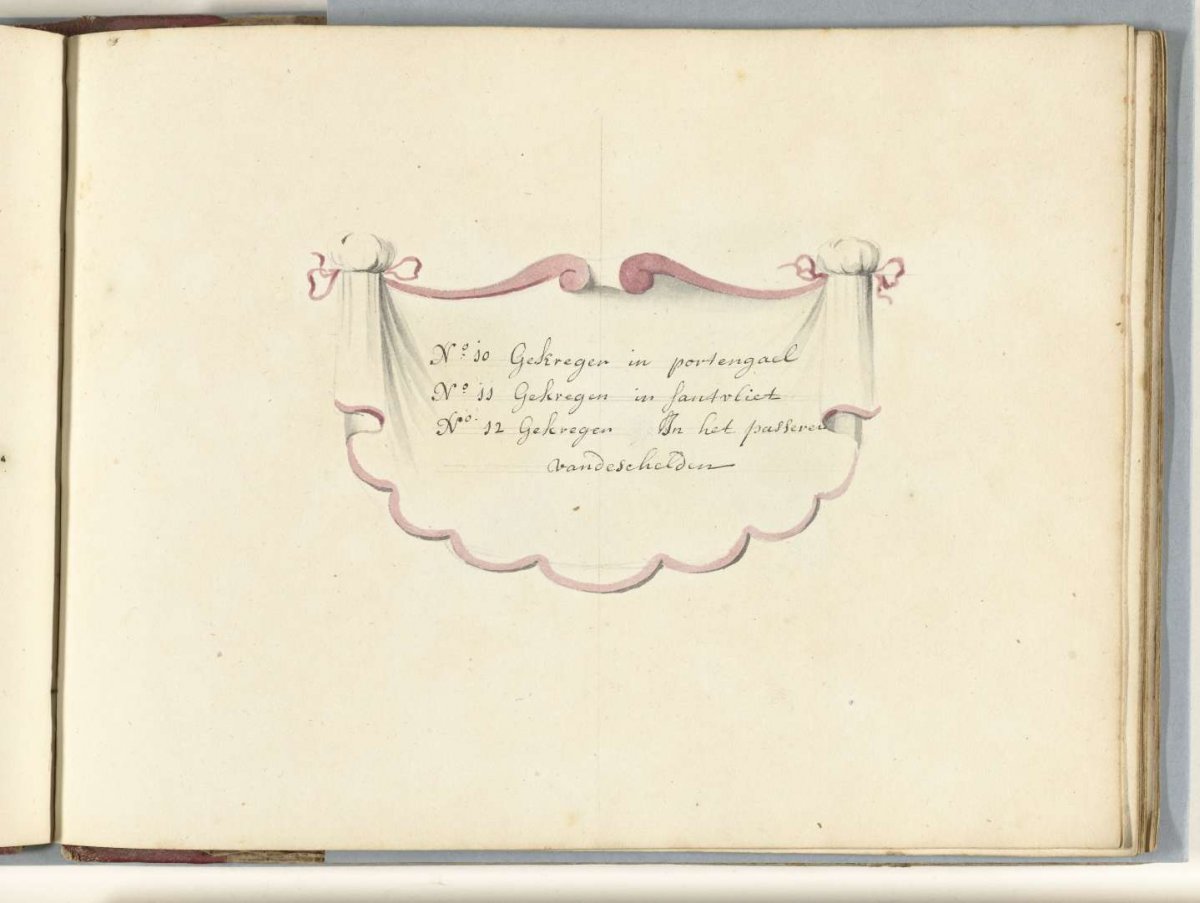 No. 10 Gekregen in portengael
No. 11 Gekregen in santvliet
No. 12 Gekregen In het passeren
vandeschelden